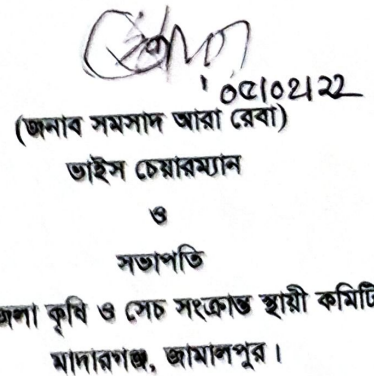 ০৫/০২/২২
(জনাব সমসাদ আরা রেবা)
ভাইস চেয়ারম্যান
ও
সভাপতি
জলা কৃষি ও সেচ সংক্রান্ত স্থায়ী কমিটি
মাদারগঞ্জ, জামালপুর।